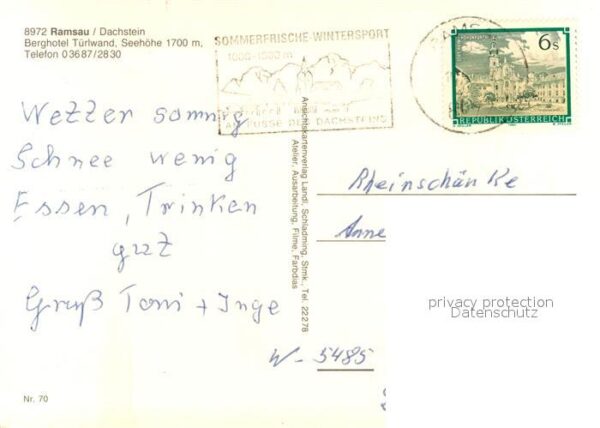 8972 Ramsau / Dachstein
Berghotel Türlwand, Seehöhe 1700 m,
Telefon 03687/2830
SOMMERFRISCHE-WINTERSPORT
AM FUSSE DES DACHSTEINS
6s
REPUBLIK ÖSTERREICH
Wetter sonnig
Schnee wenig
Essen, Trinken
gut
Gruß Toni + Inge
Ansichtskartenverlag Landl, Schladming, Stmk., Tel. 22278
Atelier, Ausarbeitung, Filme, Farbdias
Rheinschänke
Anne
W-5485
privacy protection
Datenschutz
Nr. 70